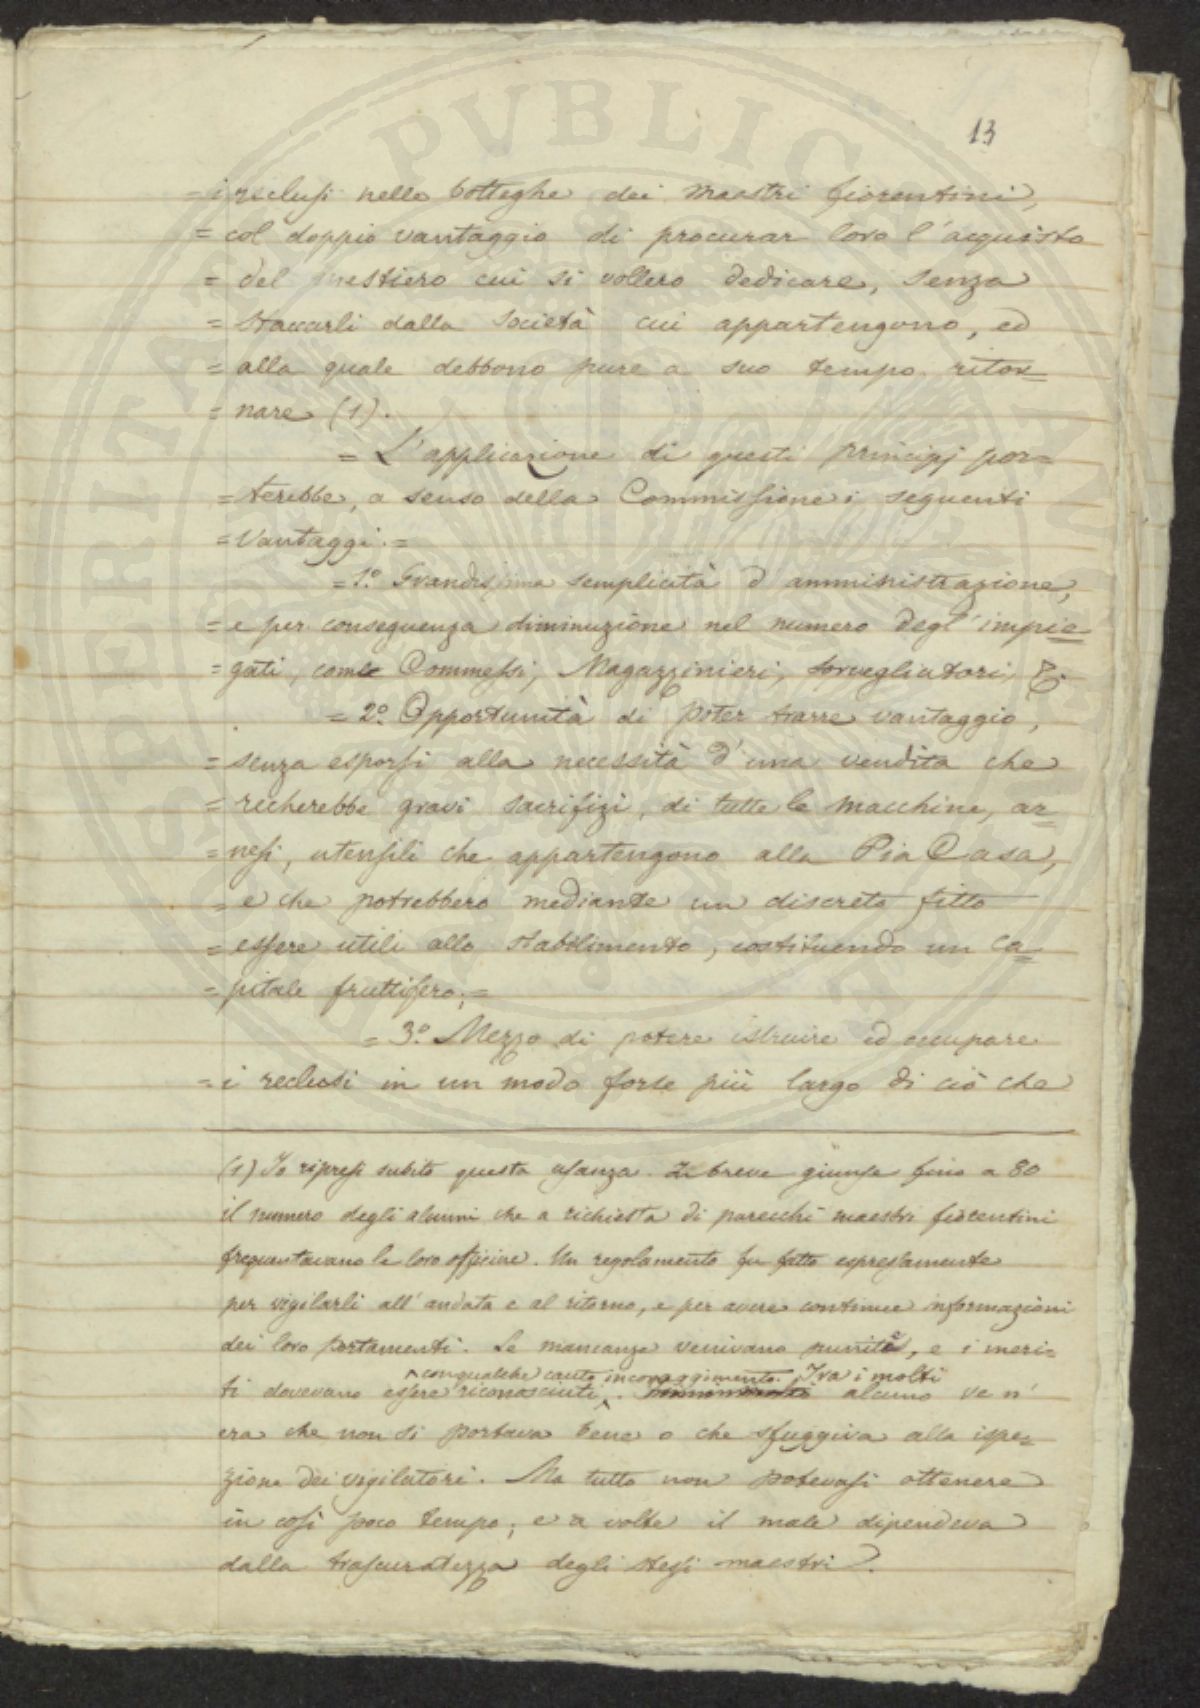 13
= i reclusi nelle botteghe dei maestri fiorentini,
= col doppio vantaggio di procurar loro l'acquisto
= del mestiero cui si vollero dedicare, senza
= staccarli dalla società cui appartengono, ed
= alla quale debbono pure a suo tempo ritor=
= nare (1).
= L'applicazione di questi principj por=
= terebbe, a senso della Commissione i seguenti
= vantaggi. =
= 1.º Grandissima semplicità d'amministrazione,
= e per conseguenza diminuzione nel numero degl'impie=
= gati, come Commessi, Magazzinieri, sorvegliatori, &.
= 2.º Opportunità di poter trarre vantaggio,
= senza esporsi alla necessità d'una vendita che
= recherebbe gravi sacrifizi, di tutte le macchine, ar=
= nesi, utensili che appartengono alla Pia Casa,
= e che potrebbero mediante un discreto fitto
= essere utili allo stabilimento, costituendo un ca=
= pitale fruttifero; =
= 3.º Mezzo di potere istruire ed occupare
= i reclusi in un modo forse più largo di ciò che
(1) Io ripresi subito questa usanza. In breve giunse fino a 80
il numero degli alunni che a richiesta di parecchi maestri fiorentini
frequentavano le loro officine. Un regolamento fu fatto espressamente
per vigilarli all'andata e al ritorno, e per avere continue informazioni
dei loro portamenti. Le mancanze venivano punite, e i meri=
con qualche cauto incoraggimento. Tra i molti
ti dovevano essere riconosciuti. alcuno ve n'
era che non si portava bene o che sfuggiva alla ispe=
zione dei vigilatori. Ma tutto non potevasi ottenere
in così poco tempo; e a volte il male dipendeva
dalla trascuratezza degli stessi maestri.
SPERETAS PVBLICA